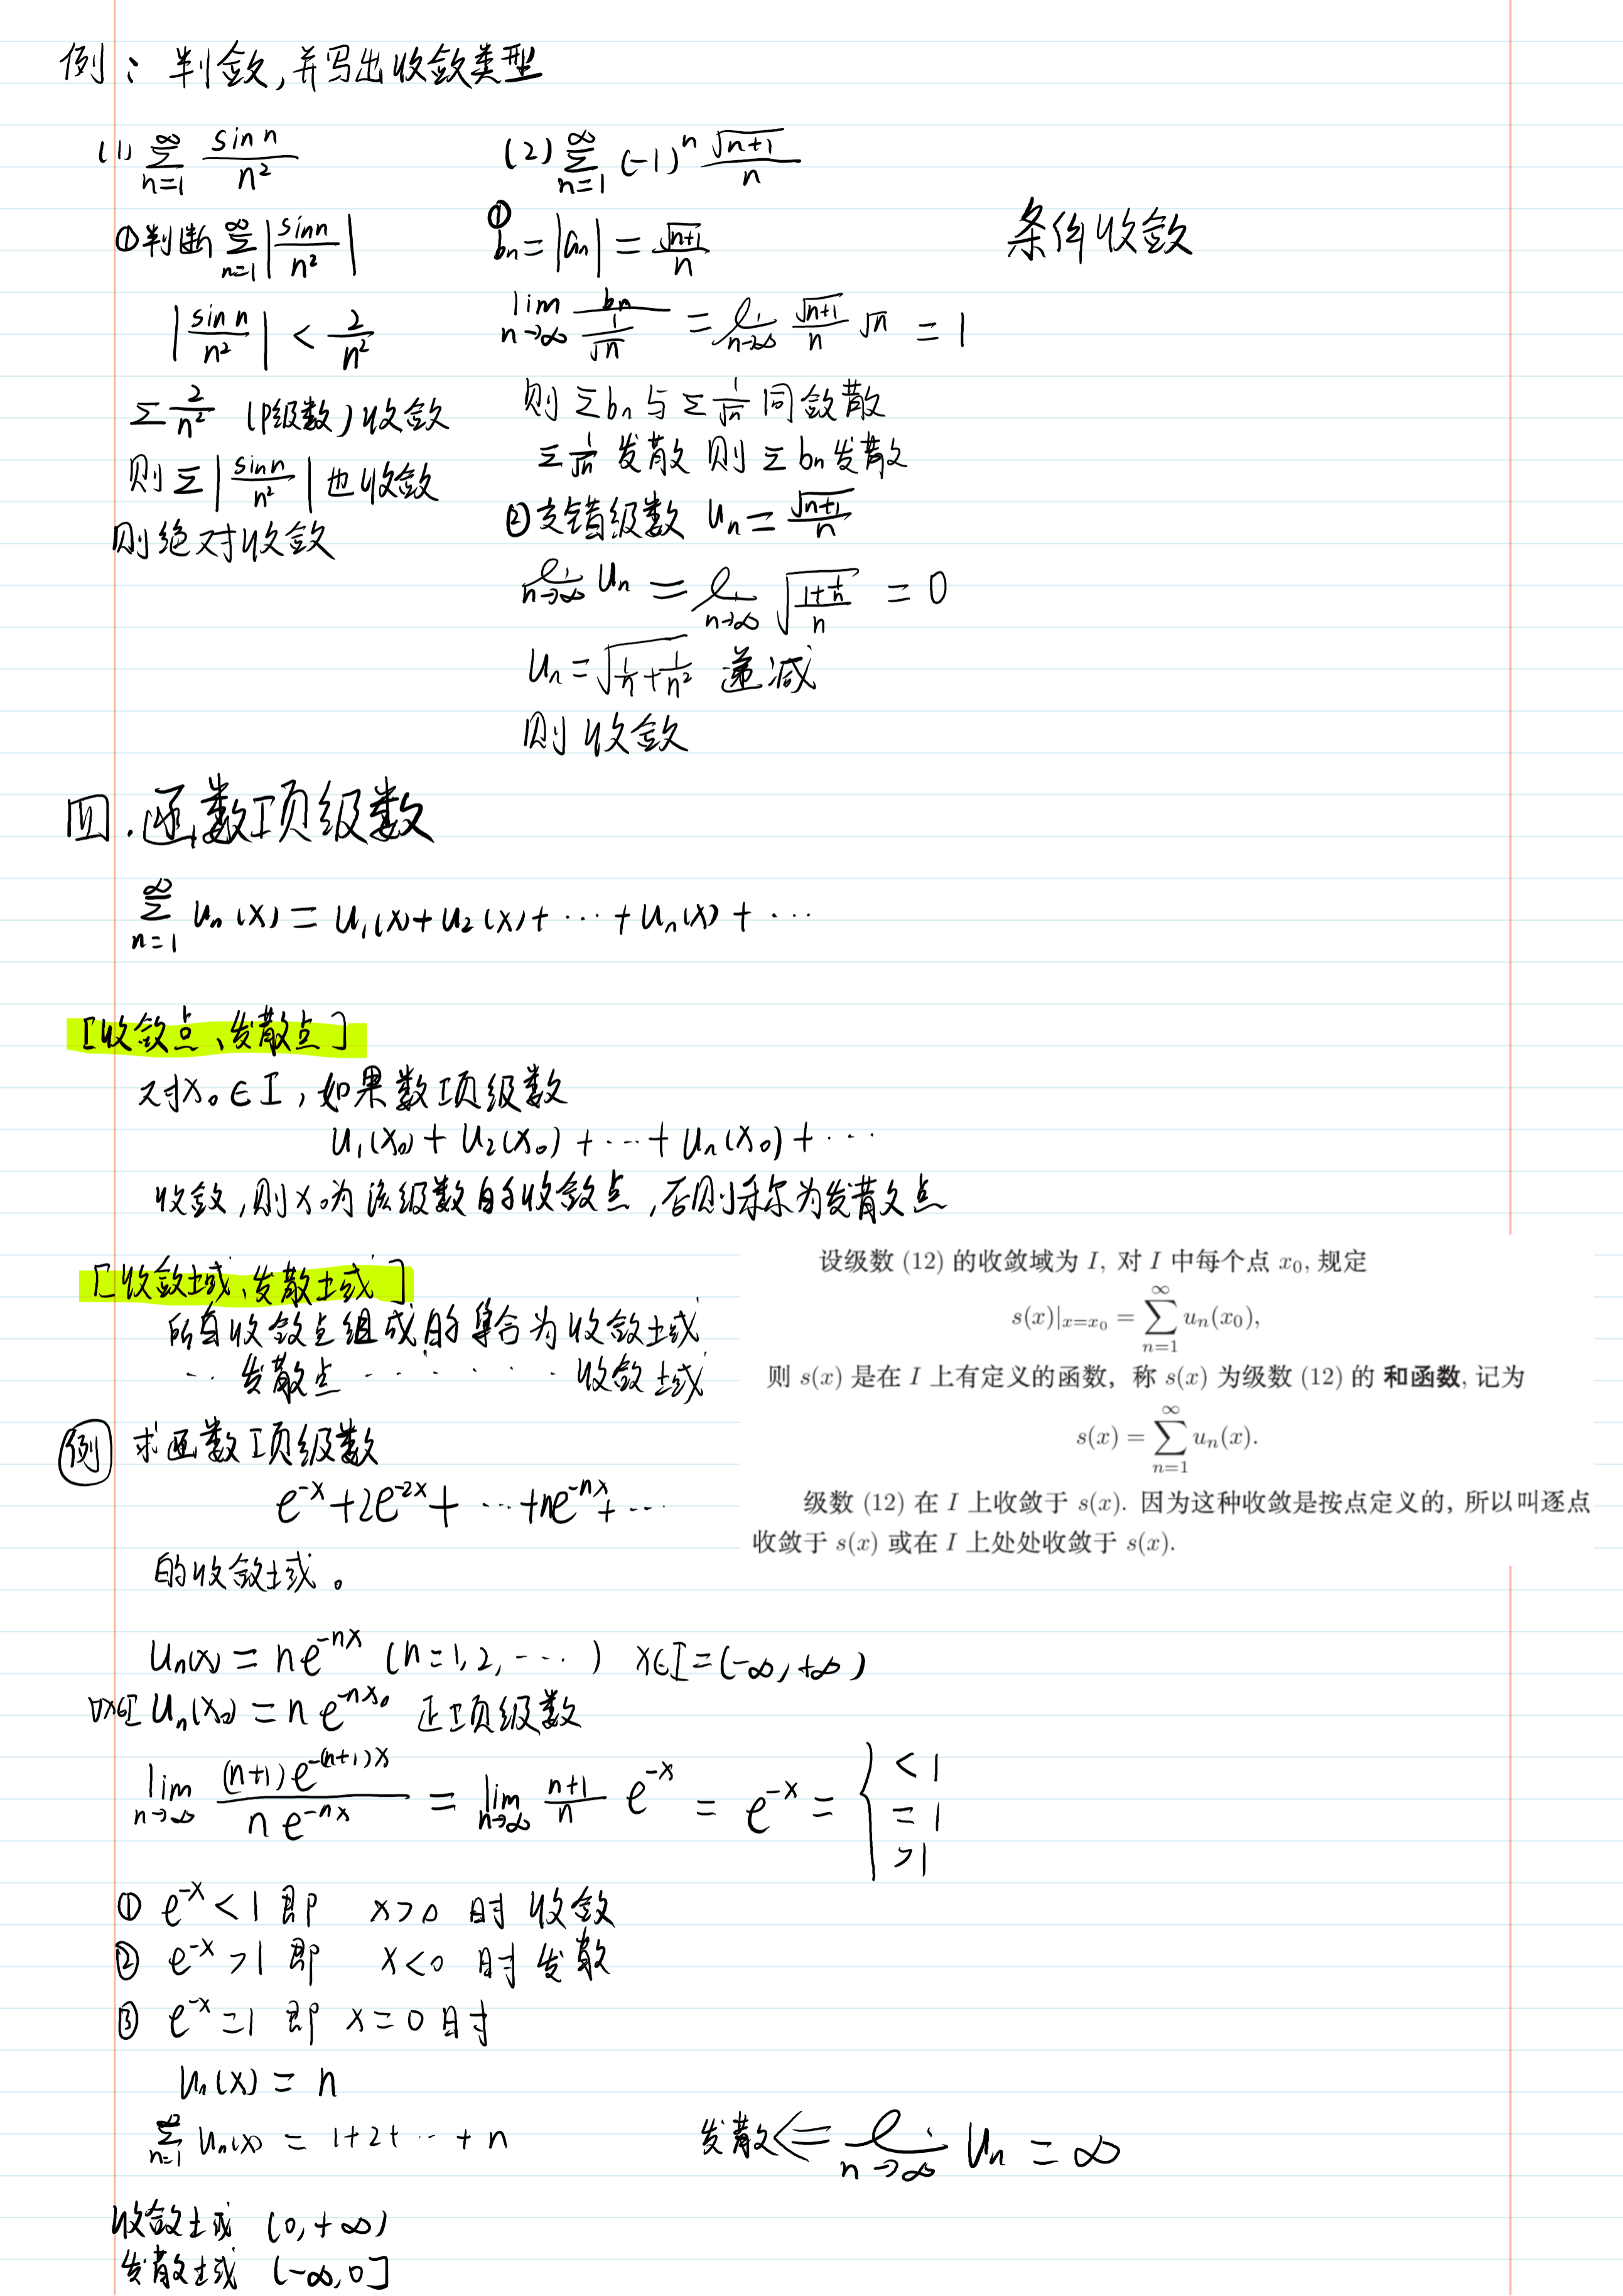 例：判敛，并写出收敛类型
(1) $\sum_{n=1}^{\infty} \frac{\sin n}{n^2}$
①判断 $\sum_{n=1}^{\infty} \left|\frac{\sin n}{n^2}\right|$
$\left|\frac{\sin n}{n^2}\right| < \frac{2}{n^2}$
$\sum \frac{2}{n^2}$ (P级数) 收敛
则 $\sum \left|\frac{\sin n}{n^2}\right|$ 也收敛
则绝对收敛
(2) $\sum_{n=1}^{\infty} (-1)^n \frac{\sqrt{n+1}}{n}$
① $b_n = |a_n| = \frac{\sqrt{n+1}}{n}$
$\lim_{n\to\infty} \frac{b_n}{\frac{1}{\sqrt{n}}} = \lim_{n\to\infty} \frac{\sqrt{n+1}}{n} \sqrt{n} = 1$
则 $\sum b_n$ 与 $\sum \frac{1}{\sqrt{n}}$ 同敛散
$\sum \frac{1}{\sqrt{n}}$ 发散 则 $\sum b_n$ 发散
②交错级数 $u_n = \frac{\sqrt{n+1}}{n}$
$\lim_{n\to\infty} u_n = \lim_{n\to\infty} \sqrt{\frac{1+\frac{1}{n}}{n}} = 0$
$u_n = \sqrt{\frac{1}{n}+\frac{1}{n^2}}$ 递减
则收敛
条件收敛
四.函数项级数
$\sum_{n=1}^{\infty} u_n(x) = u_1(x) + u_2(x) + \cdots + u_n(x) + \cdots$
[收敛点、发散点]
对$x_0 \in I$，如果数项级数
$u_1(x_0) + u_2(x_0) + \cdots + u_n(x_0) + \cdots$
收敛，则$x_0$为该级数的收敛点，否则称为发散点
[收敛域、发散域]
所有收敛点组成的集合为收敛域
‥ 发散点 ‥ ‥ ‥ 收敛域
设级数 (12) 的收敛域为 $I$, 对 $I$ 中每个点 $x_0$, 规定
$s(x)|_{x=x_0} = \sum_{n=1}^{\infty} u_n(x_0),$
则 $s(x)$ 是在 $I$ 上有定义的函数，称 $s(x)$ 为级数 (12) 的 和函数, 记为
$s(x) = \sum_{n=1}^{\infty} u_n(x).$
级数 (12) 在 $I$ 上收敛于 $s(x)$. 因为这种收敛是按点定义的, 所以叫逐点
收敛于 $s(x)$ 或在 $I$ 上处处收敛于 $s(x)$.
例 求函数项级数
$e^{-x} + 2e^{-2x} + \cdots + ne^{-nx} + \cdots$
的收敛域。
$u_n(x) = ne^{-nx}$ $(n=1,2,\cdots)$ $x \in I = (-\infty, +\infty)$
$\forall x \in I$ $u_n(x_0) = ne^{-nx_0}$ 正项级数
$\lim_{n\to\infty} \frac{(n+1)e^{-(n+1)x}}{ne^{-nx}} = \lim_{n\to\infty} \frac{n+1}{n} e^{-x} = e^{-x} = \begin{cases} <1 \\ =1 \\ >1 \end{cases}$
① $e^{-x} < 1$ 即 $x > 0$ 时 收敛
② $e^{-x} > 1$ 即 $x < 0$ 时 发散
③ $e^{-x} = 1$ 即 $x = 0$ 时
$u_n(x) = n$
$\sum_{n=1}^{\infty} u_n(x) = 1+2+\cdots+n$ 发散 $\Leftarrow \lim_{n\to\infty} u_n = \infty$
收敛域 $(0, +\infty)$
发散域 $(-\infty, 0]$